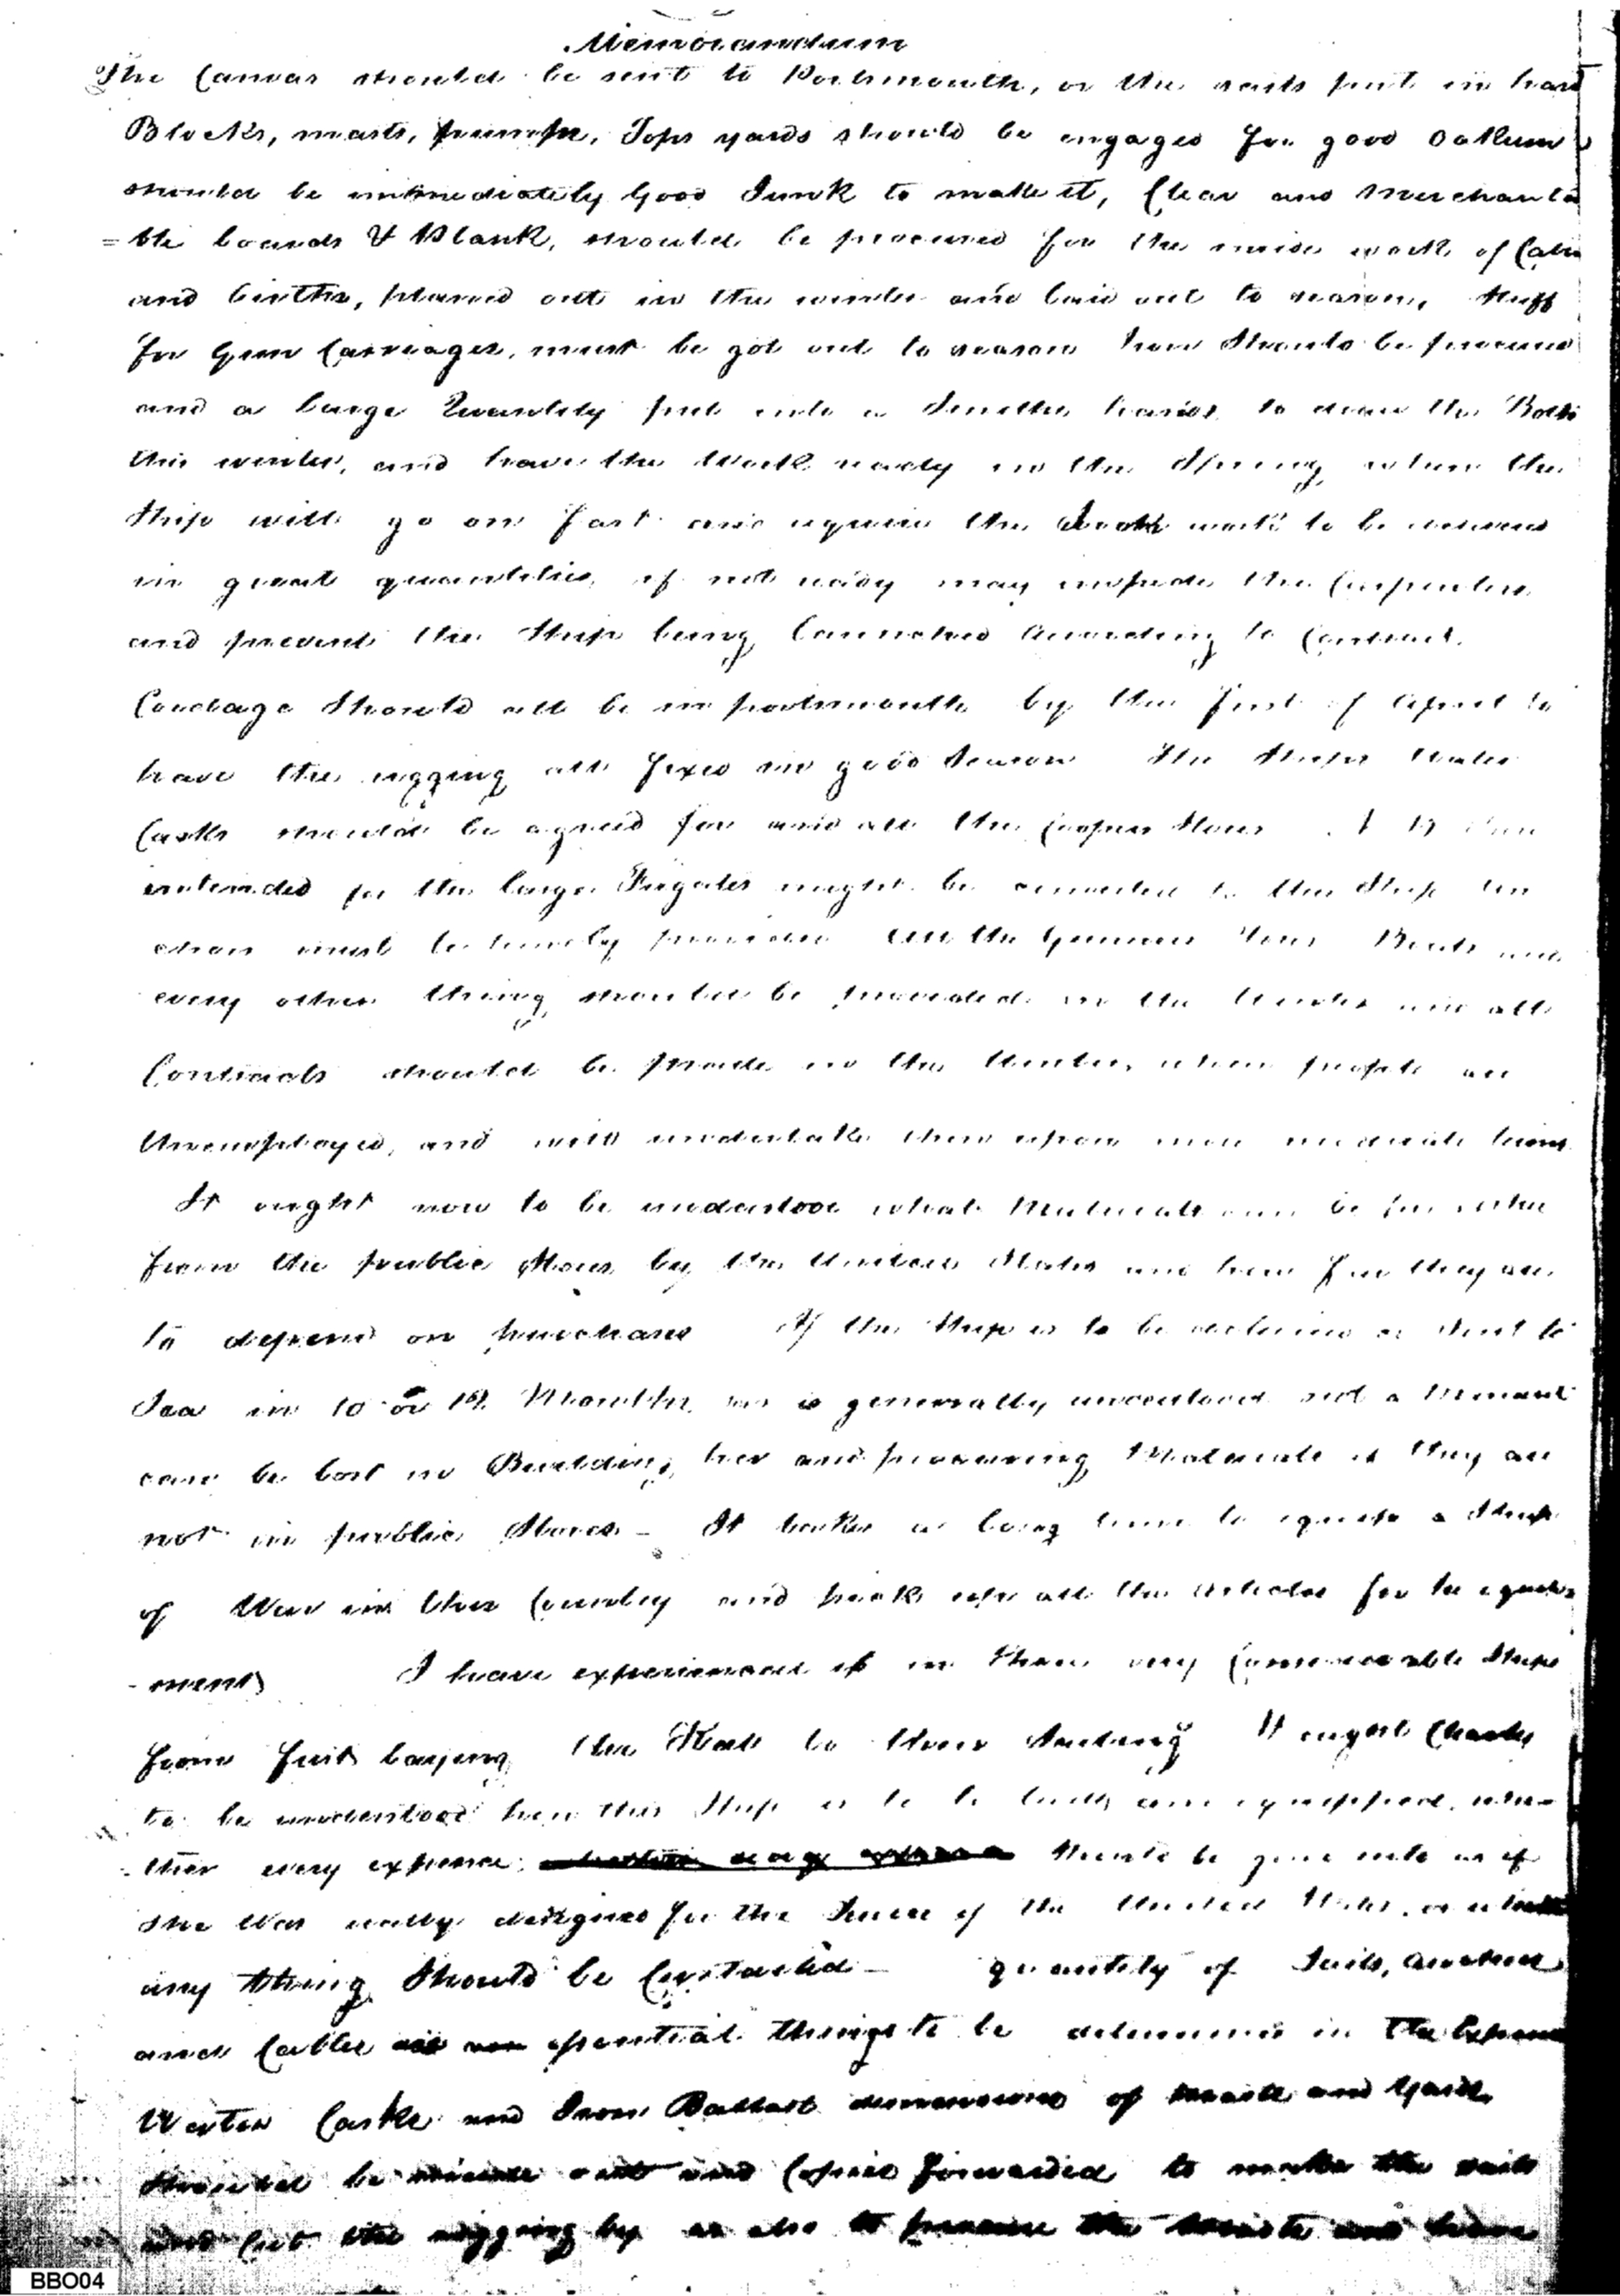 Memorandum
The Canvas should be sent to Portsmouth, or the sails put in hand
Blocks, masts, pumps, Tops yards should be engaged for good Oakum
should be immediately Good Junk to make it, Clear and Merchanta
=ble boards & Plank, should be procured for the inside work of Cabin
and births, planed out in the winter and laid out to season, Stuff
for Gun Carriages, must be got out to season Iron Should be procured
and a large Quantity put into a Smiths hands to draw the Bolts
this winter, and have the Work ready in the Spring, when the
Ship will go on fast and require the work to be
in great quantities, if not ready may impede the Carpenters
and prevent the Ship being Launched According to Contract.
Cordage Should all be in portsmouth by the first of April to
have the rigging all fixed in good Season The Ships Water
Casks should be agreed for and all the Coopers Stores
intended for the large Frigates might be to this Ship
must be timely provided All the Gunners Stores Boats and
every other thing should be provided in the Winter and all
Contracts should be made in the Winter, when people are
Unemployed, and will undertake them upon more moderate terms
It ought now to be understood what Materials can be
from the public Stores by the United States and how far they are
to depend on purchases If the Ship is to be or Sent to
Sea in 10 or 12 Months, as is generally understood not a Moment
can be lost in Building her and procuring Materials if they are
not in public Stores - It takes a long time to equip a Ship
of War in this Country and pick up all the Articles for her equip
-ment I have experienced it in Three very Considerable Ships
from first laying the Keel to their Sailing It ought Clearly
to be understood how this Ship is to be built and equipped, whe=
-ther every expence should be gone into as if
She Was really designed for the Service of the United States, or whether
any thing Should be Curtailed - quantity of Sails, Anchors
and Cables are essential things to be determined in The Expence
Water Casks and Iron Ballast dimensions of masts and Yards
Should be made out and Copies forwarded to make the sails
and cut the rigging by as also to procure the
BBO04